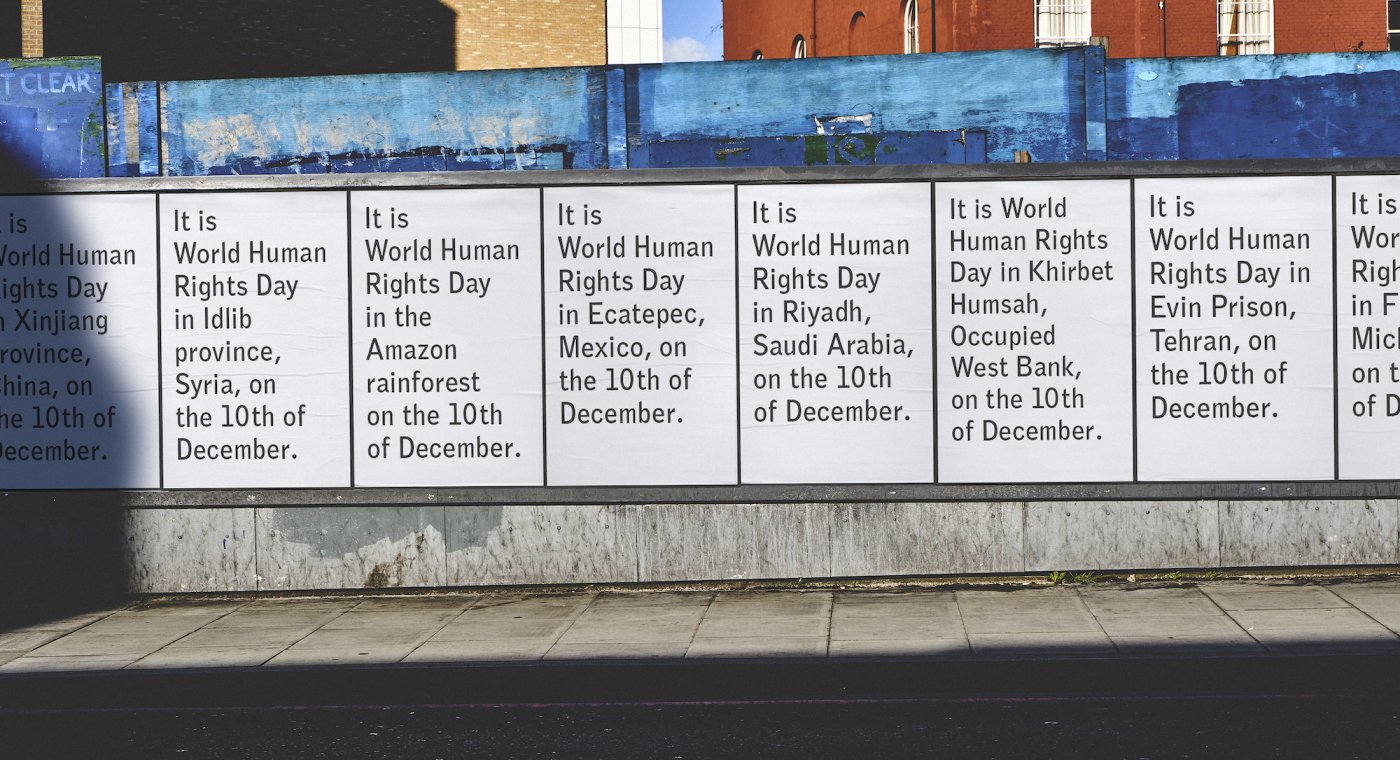 T CLEAR
is
World Human
Rights Day
Xinjiang
Province,
China, on
the 10th of
December.
It is
World Human
Rights Day
in Idlib
province,
Syria, on
the 10th of
December.
It is
World Human
Rights Day
in the
Amazon
rainforest
on the 10th
of December.
It is
World Human
Rights Day
in Ecatepec,
Mexico, on
the 10th of
December.
It is
World Human
Rights Day
in Riyadh,
Saudi Arabia,
on the 10th
of December.
It is World
Human Rights
Day in Khirbet
Humsah,
Occupied
West Bank,
on the 10th
of December.
It is
World Human
Rights Day in
Evin Prison,
Tehran, on
the 10th of
December.
It is
Wor
Righ
in F
Mic
on t
of D